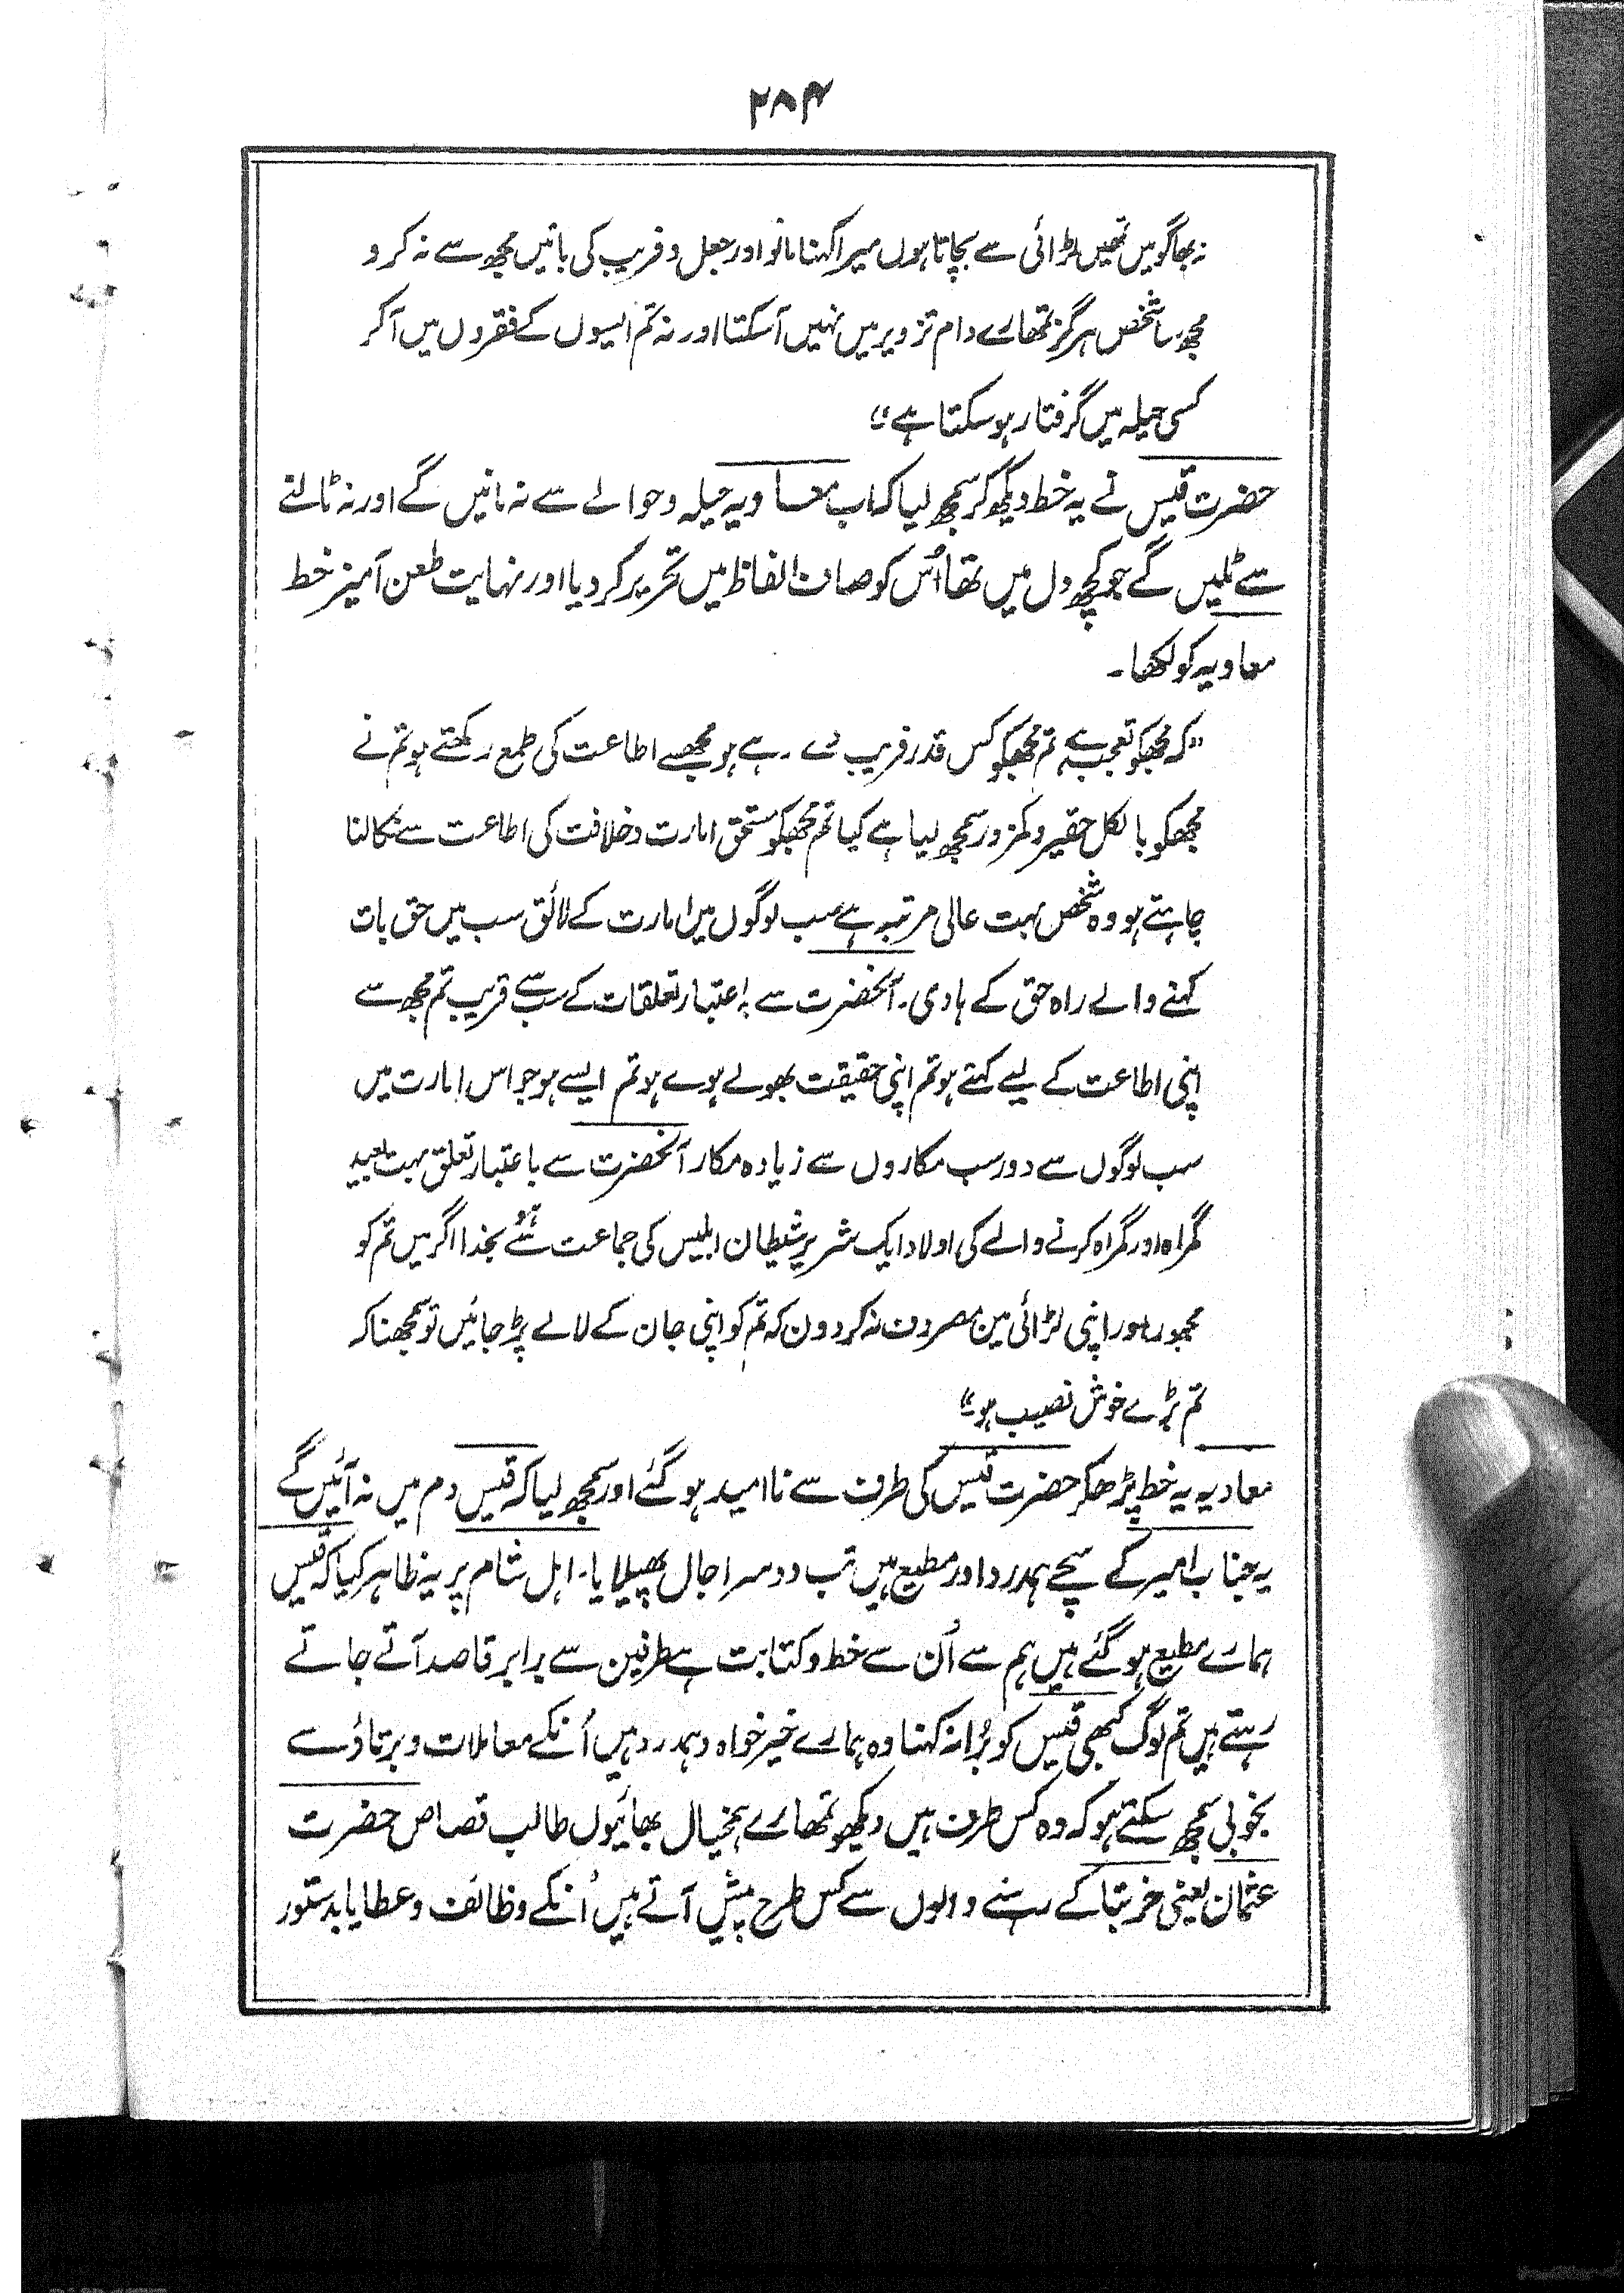 ۲۸۴
نہ بھاگو میں تمھیں لڑائی سے بچاتا ہوں میرا کہنا مانو اور جعل و فریب کی باتیں مجھ سے نہ کرو
مجھ سا شخص ہرگز تمھارے دام تزویر میں نہیں آسکتا اور نہ تم ایسوں کے فقروں میں آکر
کسی حیلہ میں گرفتار ہوسکتا ہے“
حضرت قیس نے یہ خط دیکھ کر سمجھ لیا کہ اب معاویہ حیلہ و حوالے سے نہ مانیں گے اور نہ ٹالنے
سے ٹلیں گے جو کچھ دل میں تھا اُس کو صاف الفاظ میں تحریر کردیا اور نہایت طعن آمیز خط
معاویہ کو لکھا۔
”کہ مجھکو تعجب ہے تم مجھکو کس قدر فریب دے رہے ہو مجھسے اطاعت کی طمع رکھتے ہو تم نے
مجھکو بالکل حقیر و کمزور سمجھ لیا ہے کیا تم مجھکو مستحق امارت و خلافت کی اطاعت سے نکالنا
چاہتے ہو وہ شخص بہت عالی مرتبہ ہے سب لوگوں میں امارت کے لائق سب میں حق بات
کہنے والے راہ حق کے ہادی۔ آنحضرت سے باعتبار تعلقات کے سب سے قریب تم مجھ سے
اپنی اطاعت کے لیے کہتے ہو تم اپنی حقیقت بھولے ہوے ہو تم ایسے ہو جو اس امارت میں
سب لوگوں سے دور سب مکاروں سے زیادہ مکار آنحضرت سے باعتبار تعلق بہت بعید
گمراہ اور گمراہ کرنے والے کی اولاد ایک شریر شیطان ابلیس کی جماعت سے ہو بخدا اگر میں تم کو
مجبور اور اپنی لڑائی مین مصروف نہ کردون کہ تم کو اپنی جان کے لالے پڑجائیں تو سمجھنا کہ
تم بڑے خوش نصیب ہو“
معاویہ یہ خط پڑھکر حضرت قیس کی طرف سے ناامید ہوگئے اور سمجھ لیا کہ قیس دم میں نہ آئیں گے
یہ جناب امیر کے سچے ہمدرد اور مطیع ہیں تب دوسرا جال پھیلایا۔ اہل شام پر یہ ظاہر کیا کہ قیس
ہمارے مطیع ہوگئے ہیں ہم سے اُن سے خط و کتابت ہے طرفین سے برابر قاصد آتے جاتے
رہتے ہیں تم لوگ کبھی قیس کو بُرا نہ کہنا وہ ہمارے خیر خواہ و ہمدرد ہیں اُنکے معاملات و برتاؤ سے
بخوبی سمجھ سکتے ہو کہ وہ کس طرف ہیں دیکھو تمھارے ہمخیال بھائیوں طالب قصاص حضرت
عثمان یعنی خربتا کے رہنے والوں سے کس طرح پیش آتے ہیں اُنکے وظائف و عطایا بدستور